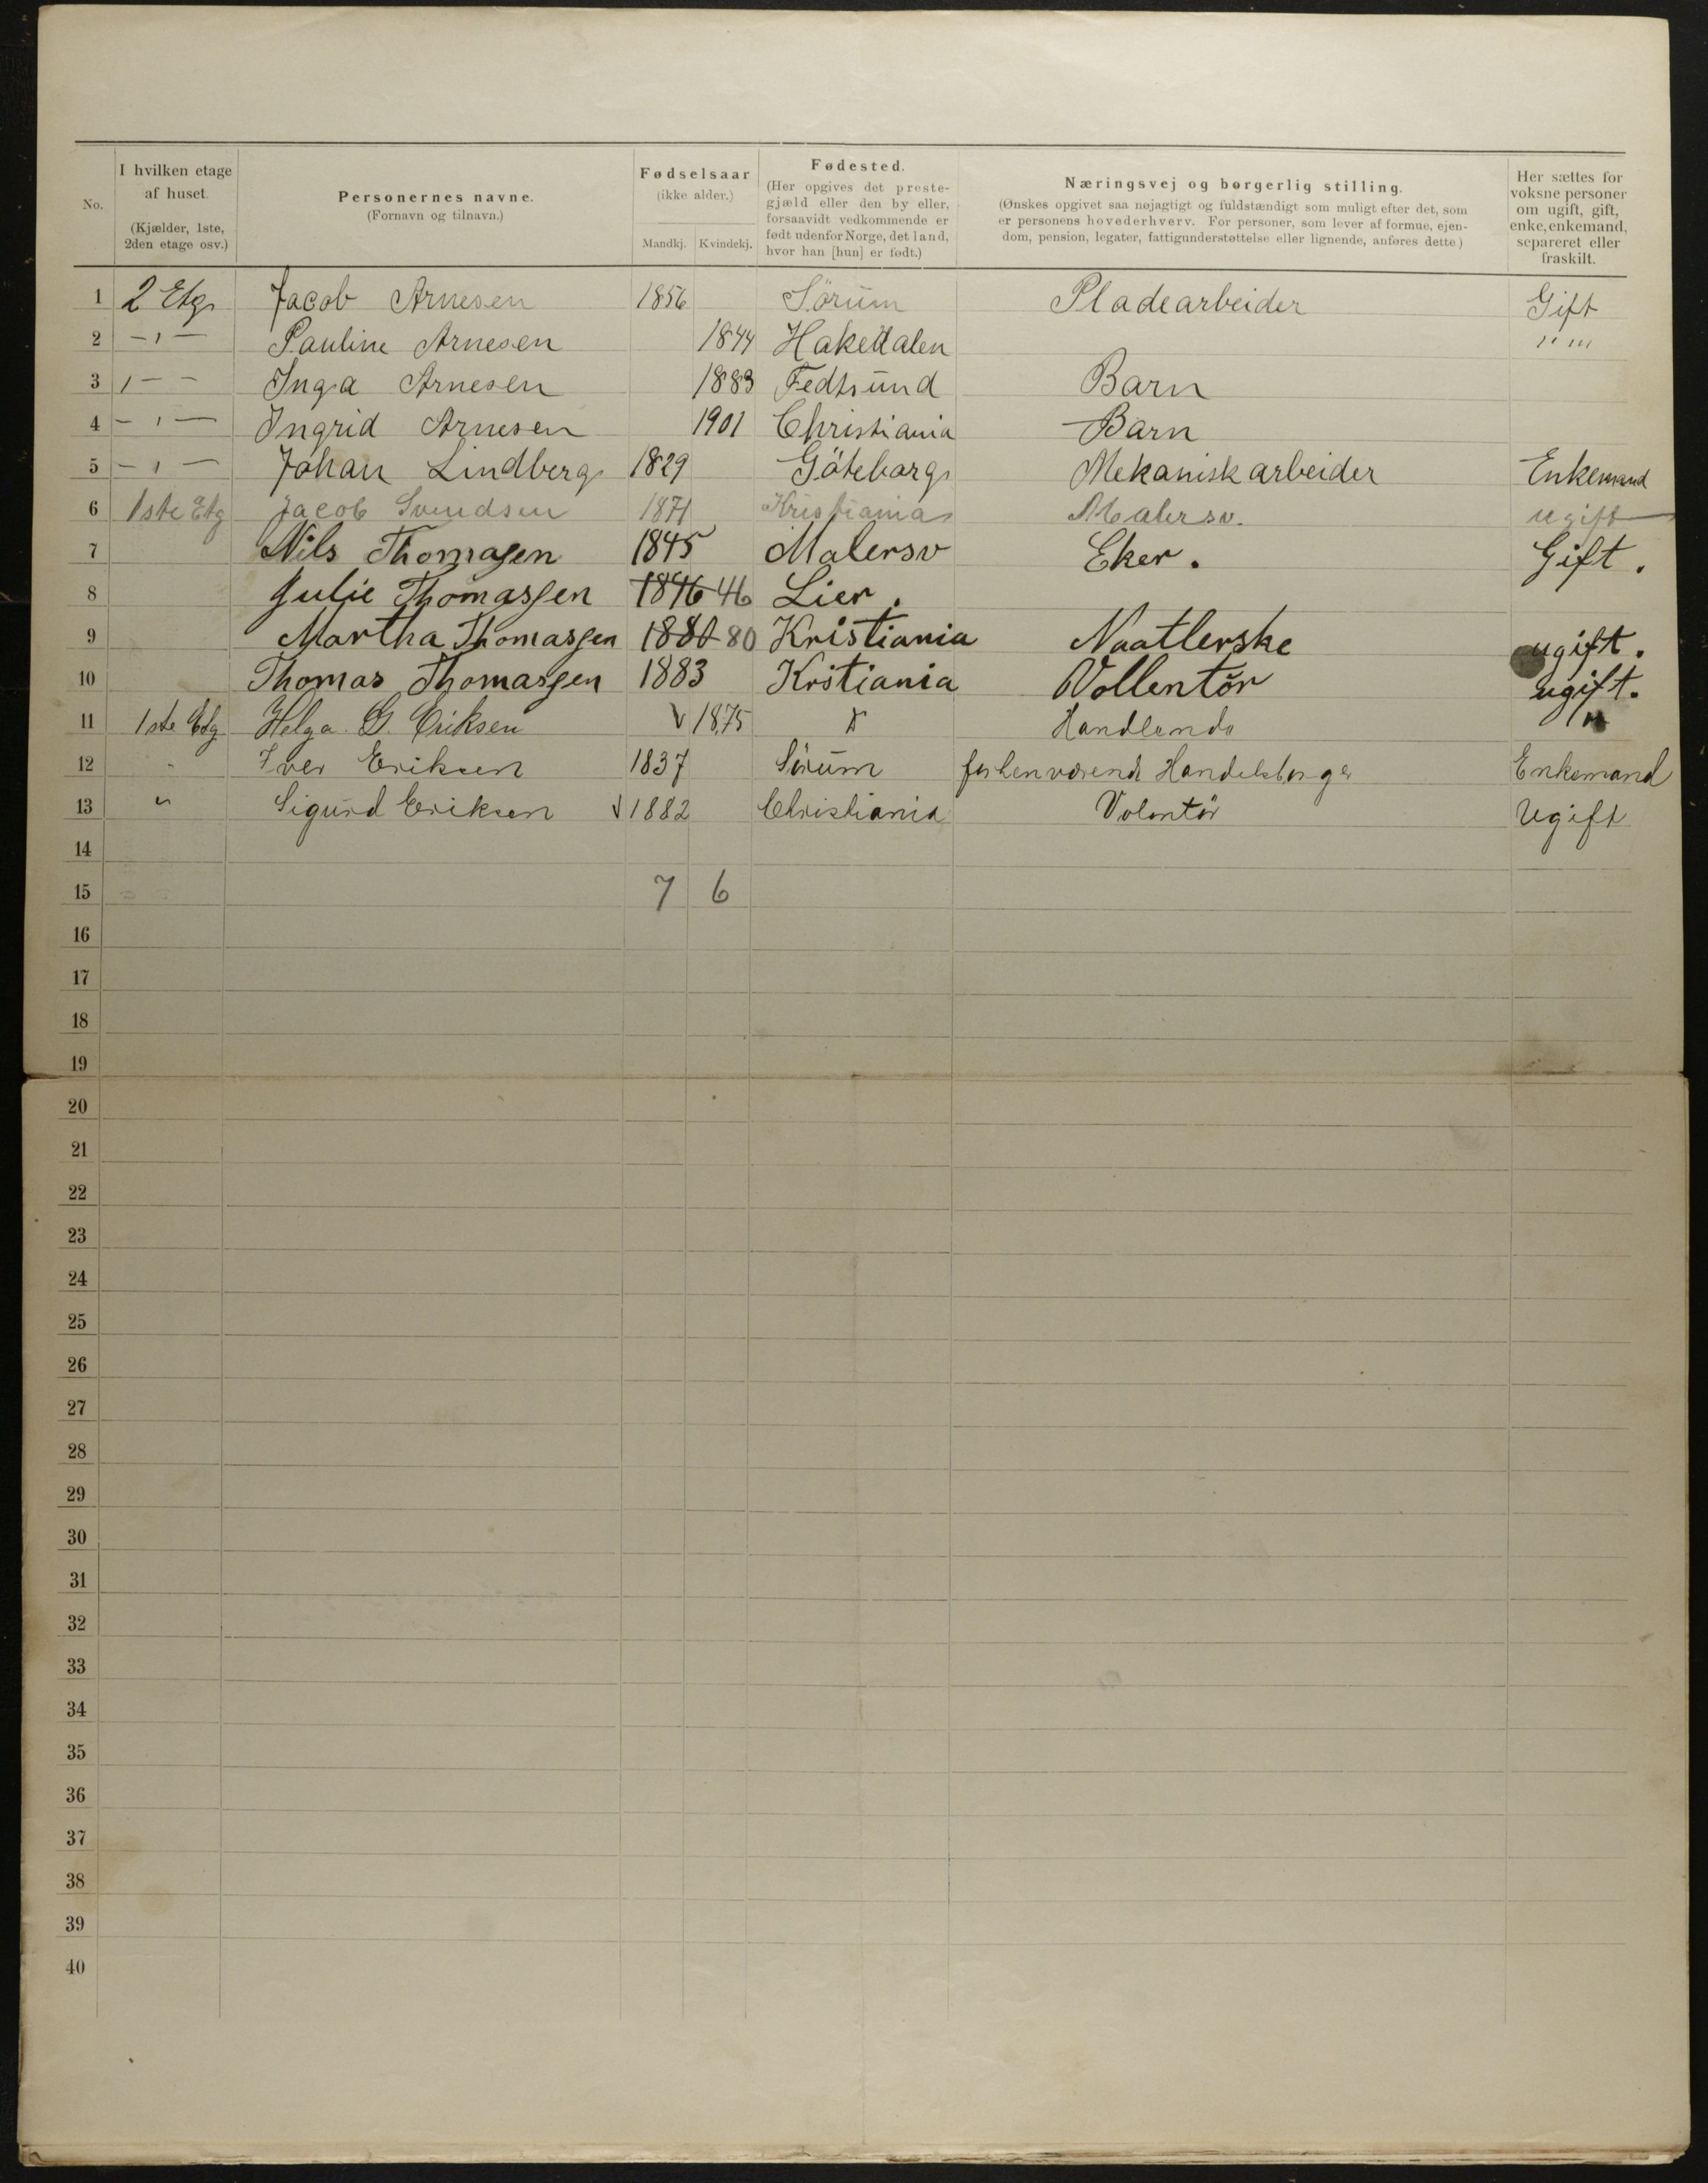 No.
I hvilken etage af huset. (Kjælder, 1ste, 2den etage osv.)
Personernes navne. (Fornavn og tilnavn.)
Fødselsaar (ikke alder.) Mandkj. Kvindekj.
Fødested. (Her opgives det prestegjæld eller den by eller, forsaavidt vedkommende er født udenfor Norge, det land, hvor han [hun] er født.)
Næringsvej og borgerlig stilling. (Ønskes opgivet saa nøjagtigt og fuldstændigt som muligt efter det, som er personens hovederhverv. For personer, som lever af formue, ejendom, pension, legater, fattigunderstøttelse eller lignende, anføres dette.)
Her sættes for voksne personer om ugift, gift, enke, enkemand, separeret eller fraskilt.
1 2 Etg Jacob Arnesen 1856 Sørum Pladearbeider Gift
2 — " — Pauline Arnesen 1844 Hakedalen " "
3 " — — Inga Arnesen 1883 Fedtsund Barn
4 — " — Ingrid Arnesen 1901 Christiania Barn
5 — " — Johan Lindberg 1829 Göteborg Mekanisk arbeider Enkemand
6 1ste Etg Jacob Svendsen 1871 Kristiania Malersv. ugift
7 Nils Thomasen 1845 Malersv Eker. Gift.
8 Julie Thomassen 1846 46 Lier.
9 Martha Thomassen 1880 80 Kristiania Naatlerske ugift.
10 Thomas Thomassen 1883 Kristiania Vollentør ugift.
11 1ste Etg Helga G. Eriksen 1875 Handlende "
12 " Iver Eriksen 1837 Sørum forhenværende Handelsborger Enkemand
13 " Sigurd Eriksen 1882 Christiania Volontør Ugift
14
15 7 6
16
17
18
19
20
21
22
23
24
25
26
27
28
29
30
31
32
33
34
35
36
37
38
39
40